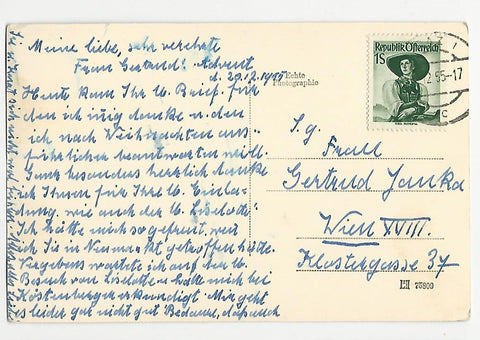 Meine liebe, sehr verehrte
Frau Gertrud! Advent
d. 20.12.1955
Heute kam Ihr lb. Brief, für
den ich innig danke u. den
ich nach Weihnachten aus-
führlicher beantworten will.
Ganz besonders herzlich danke
ich Ihnen für Ihre lb. Einla-
dung, wie auch der lb. Liselotte.
Ich hätte mich so gefreut, wenn
ich Sie in Neumarkt getroffen hätte.
Vergebens wartete ich auf den lb.
Besuch von Liselotte u. hatte mich bei
Kostenberger erkundigt. Mir geht
es leider gar nicht gut
Echte
Photographie
Republik Österreich
1S
55-17
S.g.
Frau
Gertrud Janka
Wien XVIII.
Klostergasse 37